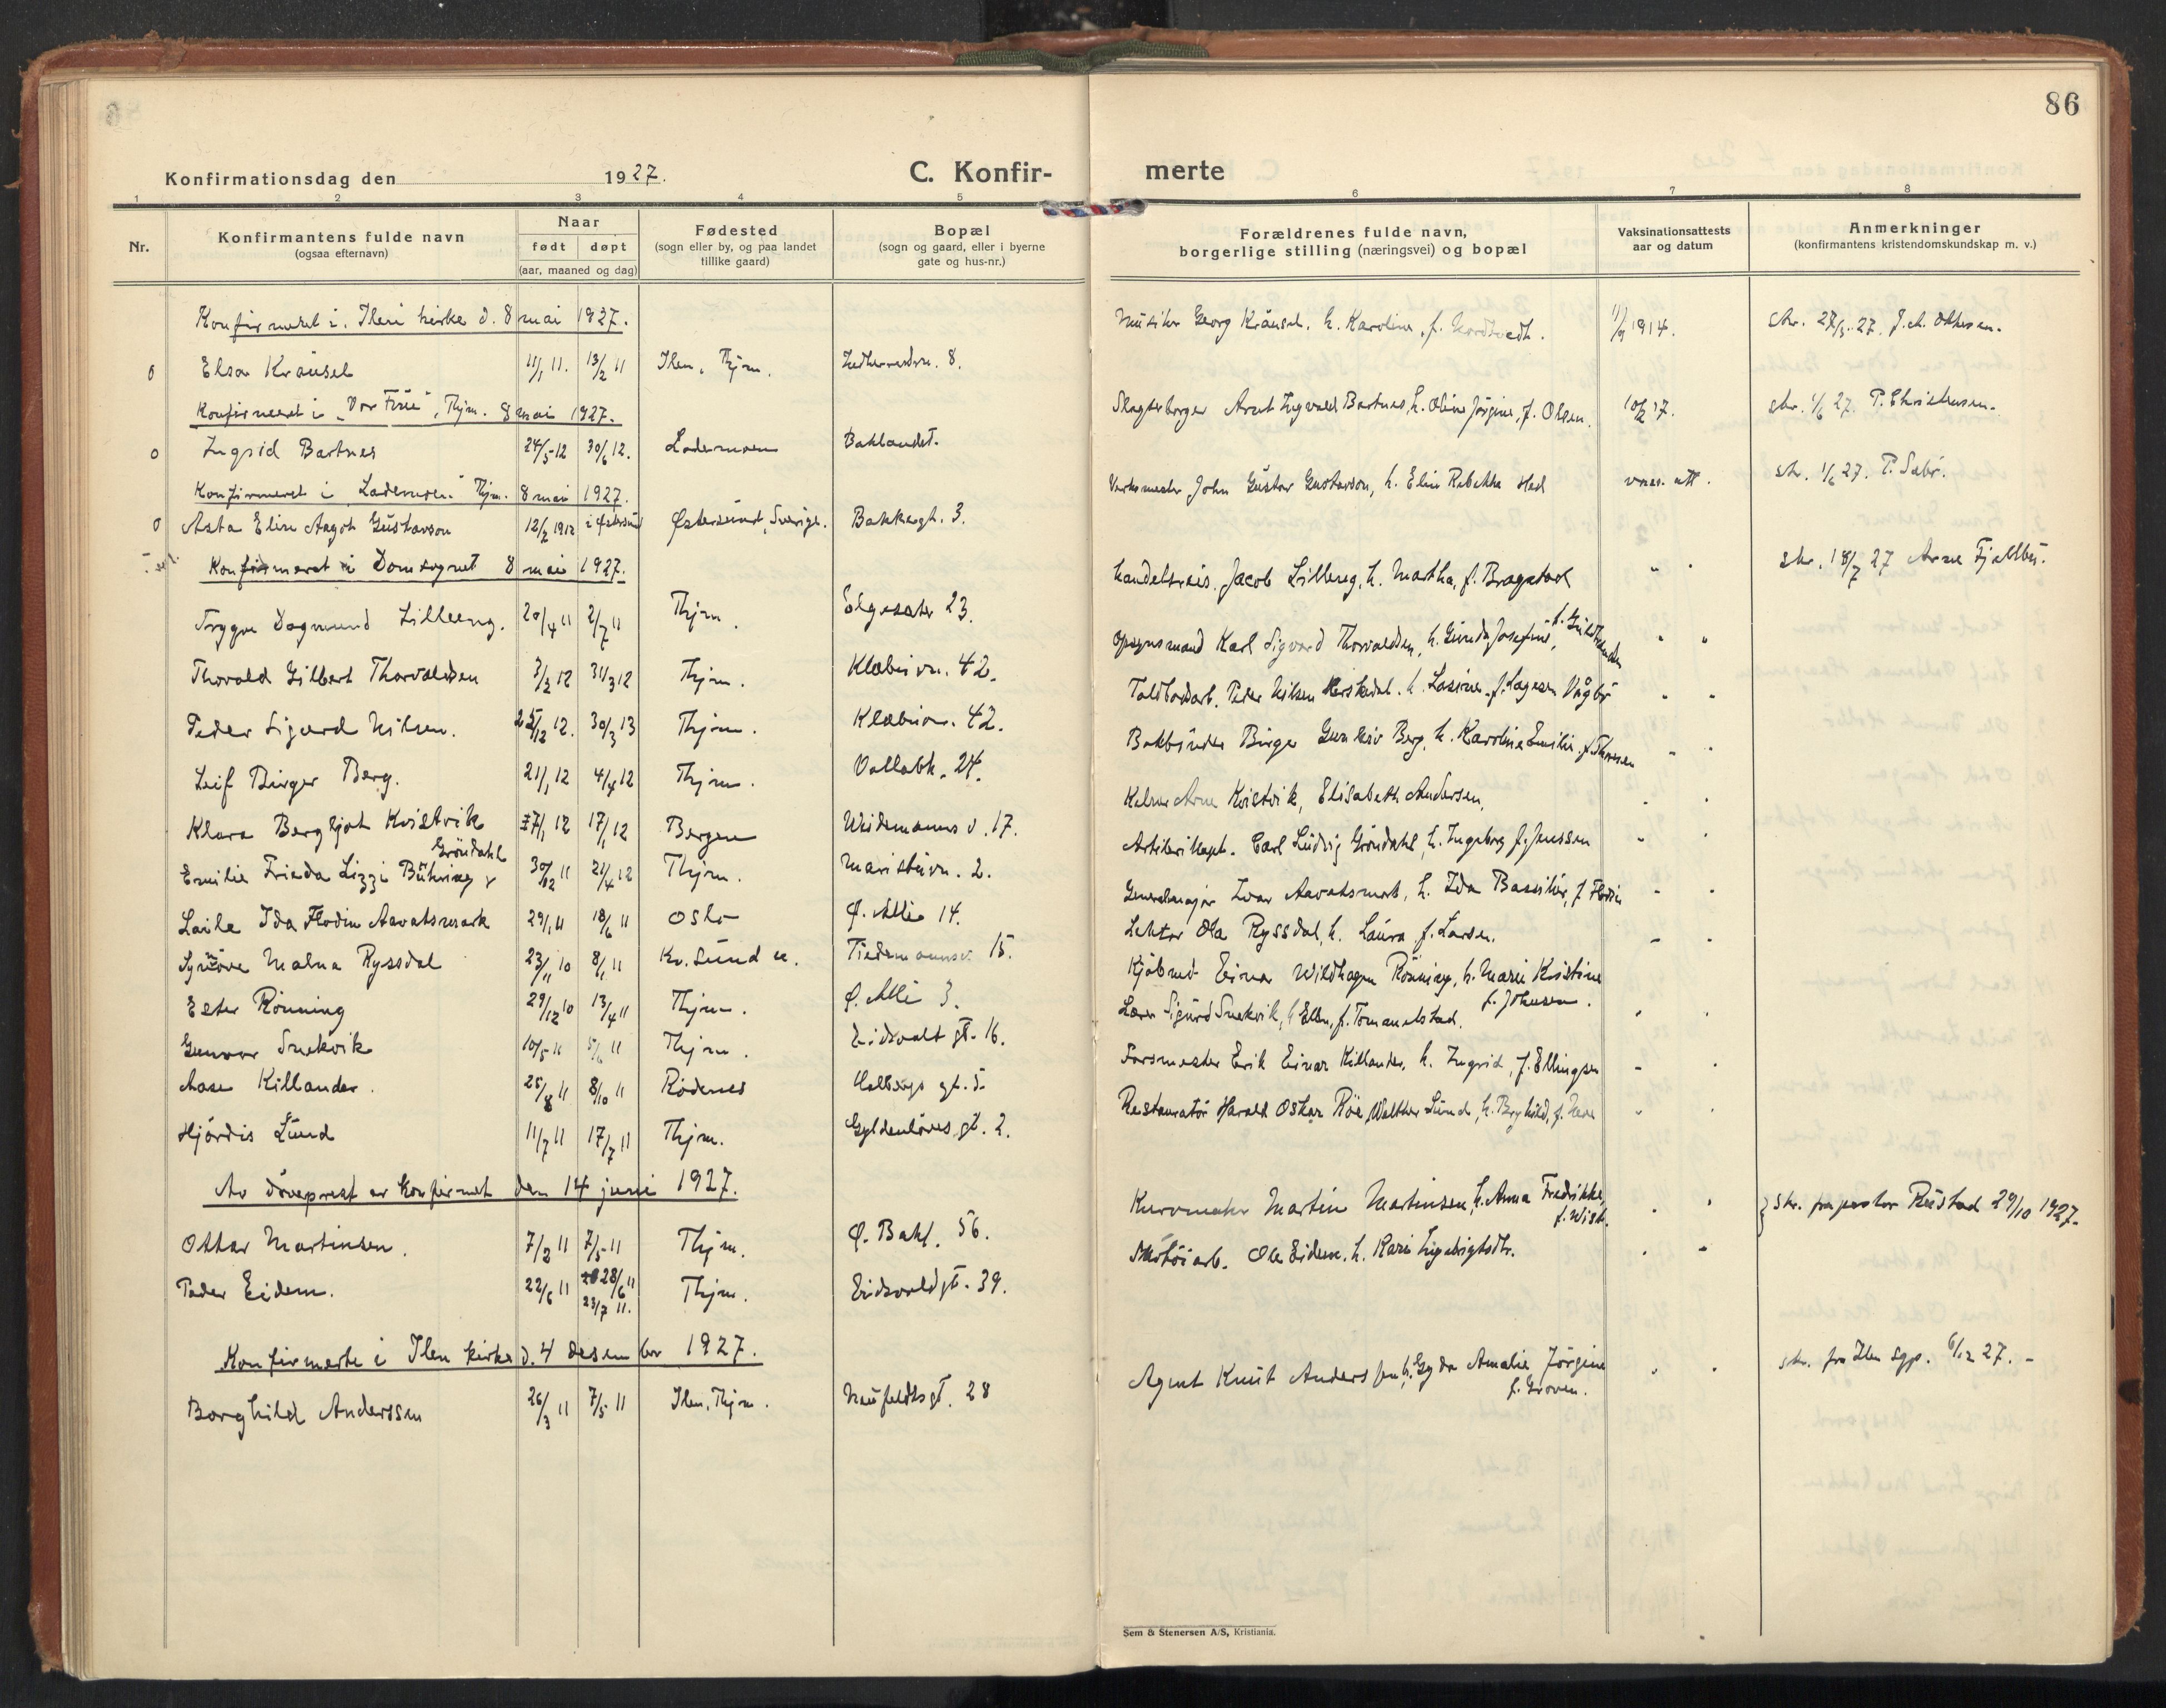 86
Konfirmationsdag den 1927. C. Konfir- merte
1 2 3 4 5 6 7 8
Nr. Konfirmantens fulde navn (ogsaa efternavn)
Naar født døpt (aar, maaned og dag)
Fødested (sogn eller by, og paa landet tillike gaard)
Bopæl (sogn og gaard, eller i byerne gate og hus-nr.)
Forældrenes fulde navn, borgerlige stilling (næringsvei) og bopæl
Vaksinationsattests aar og datum
Anmerkninger (konfirmantens kristendomskundskap m. v.)
Konfirmeret i Ilen kirke d. 8 mai 1927.
o Elsa Kräusel 11/1 11. 13/2 11 Ilen, Thjm. 8. Musiker Georg Kräusel, h. Karoline, f. Nordtvedt. 1914. skr. 27/5 27.
Konfirmeret i "Vor Frue", Thjm. 8 mai 1927.
o Ingrid Bartnes 24/5 12 30/6 12. Lademoen Baklandet. Arnt Ingvald Bartnes, h. Oline Jørgine, f. Olsen. 17. skr. 1/6 27. P. Christensen.
Konfirmeret i "Lademoen" Thjm. 8 mai 1927.
o Asta Elin Aagot Gustavson 12/2 1912 i Østersund Østersund, Sverige. Bakkegt. 3. Verksmester John Gustav Gustavson, h. Elin Rebekka Hed vacc. att. skr. 1/6 27. P. Sæbø.
Konfirmeret i Domsognet 8 mai 1927.
Trygve Dagmund Lilleeng. 20/4 11 2/7 11 Thjm. Elgesæter 23. Handelsreis. Jacob Lilleeng, h. Martha, f. Bragstad " " skr. 18/7 27 Arne Fjellbu.
Thorvald Gilbert Thorvaldsen 3/2 12 31/3 12 Thjm. Klæbuvn. 42. Opsynsmand Karl Sigvard Thorvaldsen, h. Gunda Josefine, " "
Peder Sigurd Nilsen. 25/12 12. 30/3 13 Thjm. Klæbuvn. 42. Toldbodarb. Peder Nilsen h. Lasine, f. Vågbø " "
Leif Birger Berg. 21/1 12 4/4 12 Thjm. Vollabk. 24. Bokbinder Birger Berg, h. Karoline Emilie, f. Thoresen " "
Klara Bergljot Kvistvik 27/1 12 17/1 12 Bergen Weidemanns v. 17. Kelner Arne Kvistvik, Elisabeth Andersen. " "
Emilie Frieda Lizzi Bühring Gröndahl 30/12 11 21/4 12 Thjm. Maristuvn. 2. Artilerikapt. Carl Ludvig Gröndahl, h. Ingeborg f. Jenssen " "
Laila Ida Flodin Aavatsmark 29/1 11 18/6 11 Oslo Ø. Allé 14. Generalmajor Ivar Aavatsmark, h. Ida f. Flodin " "
Synnöve Malna Ryssdal 23/11 10 8/1 11 Kr. sund n. Tidemannsv. 15. Lektor Ola Ryssdal, h. Laura f. Larsen. " "
Ester Rönning 29/12 10 13/4 11 Thjm. Ø. Allé 3. Kjöbmd. Einar Wildhagen Rönning, h. Marie Kristine f. Johnsen.
Gunvor Snekvik 10/5 11 5/6 11 Thjm. Eidsvoldt gt. 16. Lærer Sigurd Snekvik, h. Ellen, f. Tomanelstad. " "
Aase Killander. 25/8 11 8/10 11 Rödenes Holbergs gt. 5. Forsmester Erik Einar Killander, h. Ingrid, f. Ellingsen " "
Hjördis Lund 11/7 11 17/7 11 Thjm. Gyldenløves gt. 2. Restauratör Harald Oskar Röe Walther Lund, h. Borghild, f. " "
Av døveprest er konfirmert den 14 juni 1927.
Ottar Martinsen. 7/2 11 7/5 11 Thjm. Ø. Bakl. 56. Kurvmaker Martin Martinsen, h. Anna Fredrikke, f. Wist. " " } skr. fra pastor Rustad 29/10 1927.
Peder Eidem. 22/6 11 28/6 11 23/7 11. Thjm. Eidsvoldgt. 39. Skotöiarb. Ole Eidem, h. Kari Ingebrigtsdtr. " "
Konfirmerte i Ilen kirke d. 4 desember 1927.
Borghild Anderssen 26/3 11 7/5 11 Ilen, Thjm. Neufeldtsgt. 28 Agent Knut Anderssen, h. Gyda Amalie Jörgine f. Groven. " " skr. fra Ilen sgp. 6/12 27. -
Sem & Stenersen A/S, Kristiania.